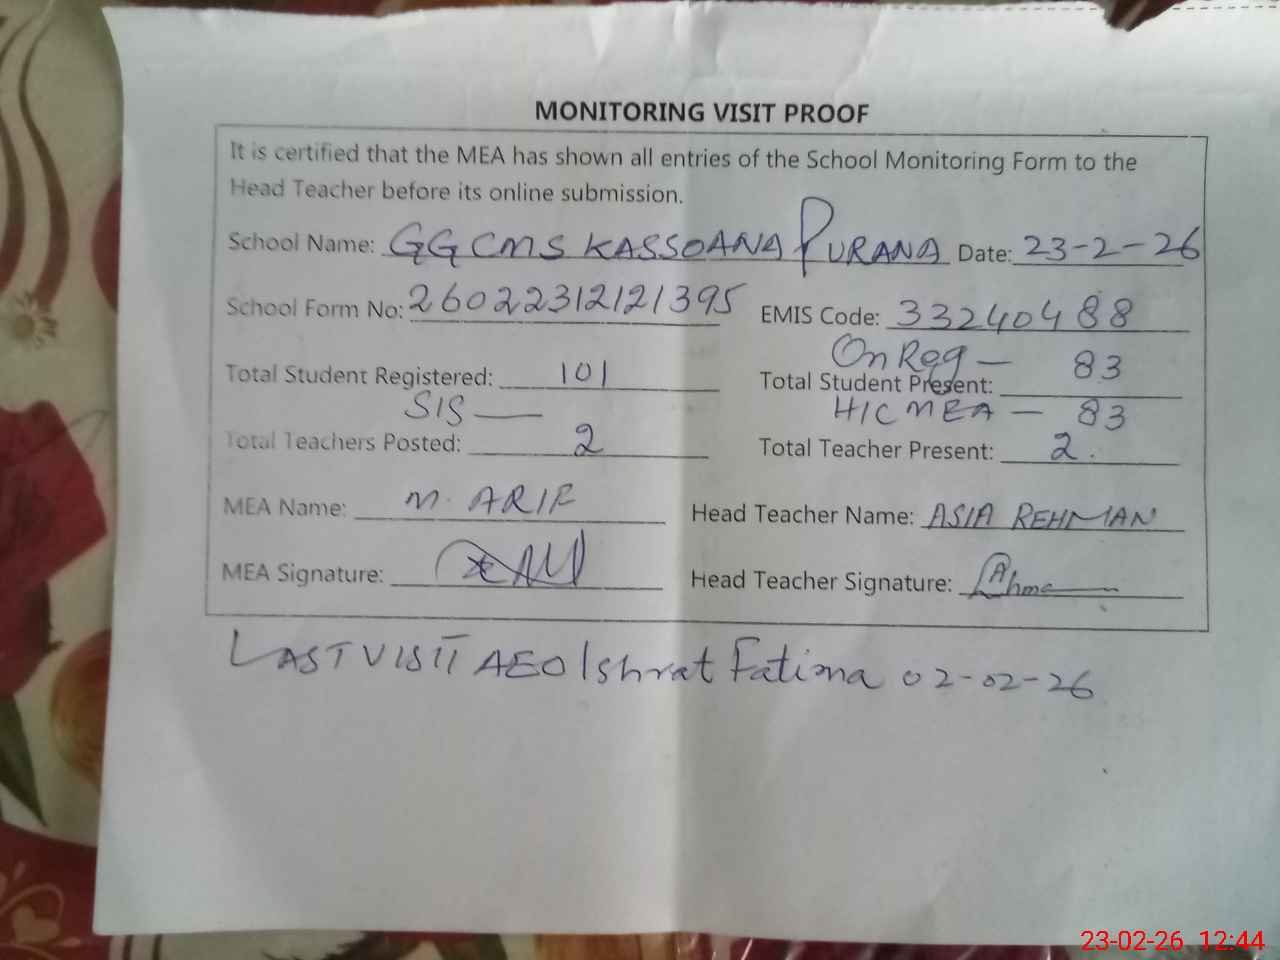 MONITORING VISIT PROOF
It is certified that the MEA has shown all entries of the School Monitoring Form to the
Head Teacher before its online submission.
School Name: GGCMS KASSOANA PURANA Date: 23-2-26
School Form No: 26022312121395 EMIS Code: 33240488
On Reg - 83
Total Student Registered: 101 Total Student Present:
SIS — HC MEA - 83
Total Teachers Posted: 2 Total Teacher Present: 2.
MEA Name: M. ARIF Head Teacher Name: ASIA REHMAN
MEA Signature: Head Teacher Signature:
LAST VISIT AEO Ishrat Fatima 02-02-26
23-02-26 12:44